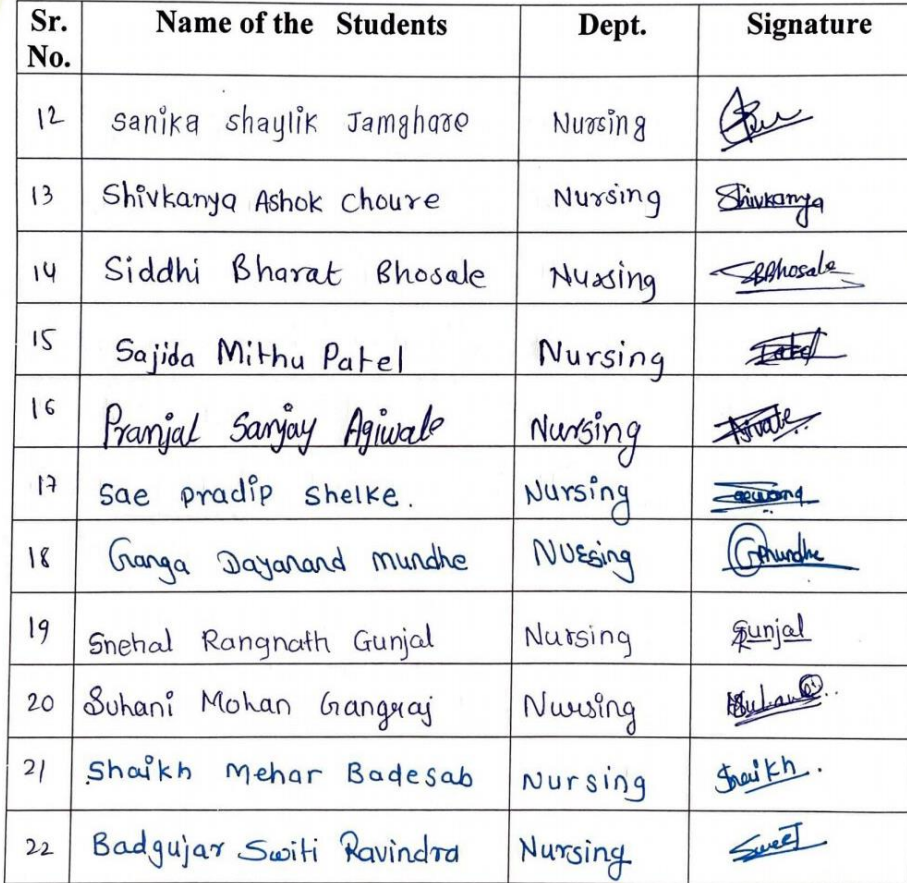 Sr. No. Name of the Students Dept. Signature
12 Sanika Shaylik Jamghare Nursing
13 Shivkanya Ashok Choure Nursing Shivkanya
14 Siddhi Bharat Bhosale Nursing SBBhosale
15 Sajida Mithu Patel Nursing Patel
16 Pranjal Sanjay Agiwale Nursing
17 Sae pradip shelke. Nursing
18 Ganga Dayanand mundhe Nursing GMundhe
19 Snehal Rangnath Gunjal Nursing Gunjal
20 Suhani Mohan Gangraj Nursing Suhani
21 Shaikh Mehar Badesab Nursing Shaikh.
22 Badgujar Switi Ravindra Nursing Sweet